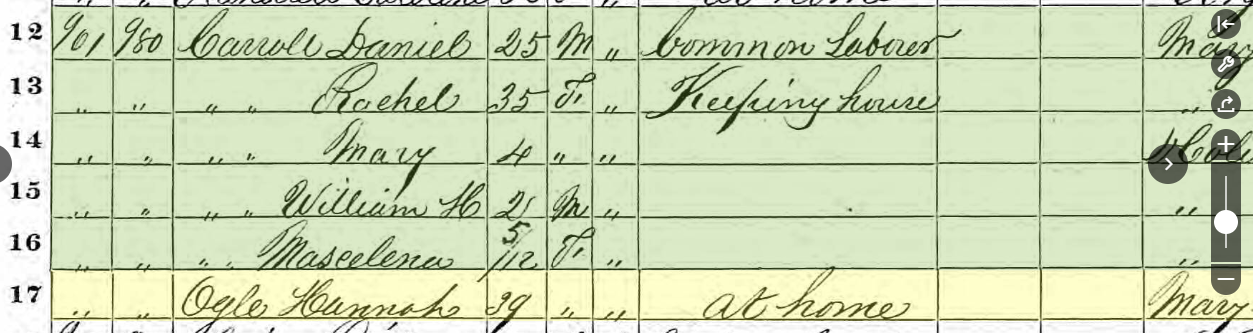 at home
12 961 980 Carroll Daniel 25 M " Common Laborer Mary
13 " " " " Rachel 35 F. " Keeping house "
14 " " " " Mary 4 " "
15 " " " " William H 2 M " "
16 " " " " Mascelena 5/12 F. " "
17 " " Ogle Hannah 39 " " at home Mary